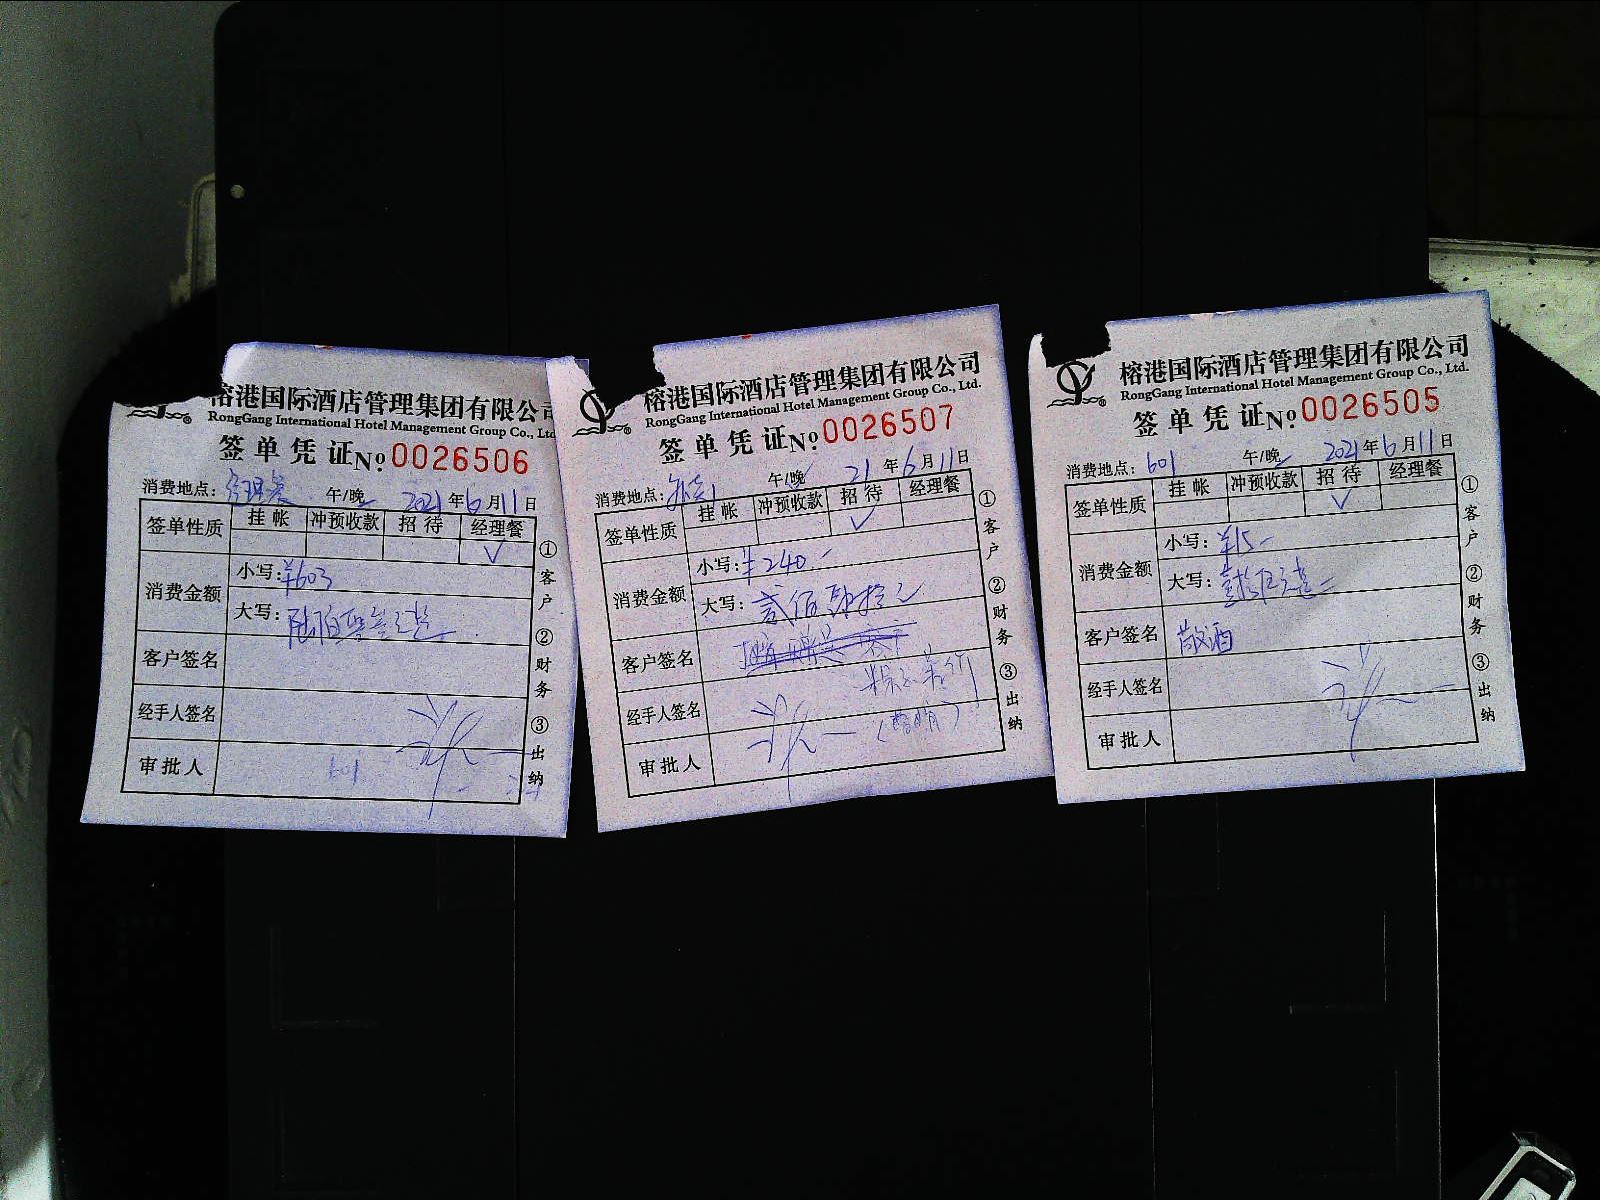 榕港国际酒店管理集团有限公司
RongGang International Hotel Management Group Co., Ltd.
签单凭证 No. 0026506
消费地点： 午/晚 2021年6月11日
签单性质 挂帐 冲预收款 招待 经理餐
√
消费金额
小写：¥603
大写：陆佰零叁元整
客户签名
经手人签名
审批人 601
① 客户 ② 财务 ③ 出纳
榕港国际酒店管理集团有限公司
RongGang International Hotel Management Group Co., Ltd.
签单凭证 No. 0026507
消费地点： 午/晚 21年6月11日
签单性质 挂帐 冲预收款 招待 经理餐
√
消费金额
小写：¥240.-
大写：贰佰肆拾元
客户签名
经手人签名
审批人
① 客户 ② 财务 ③ 出纳
榕港国际酒店管理集团有限公司
RongGang International Hotel Management Group Co., Ltd.
签单凭证 No. 0026505
消费地点：601 午/晚 2021年6月11日
签单性质 挂帐 冲预收款 招待 经理餐
√
消费金额
小写：¥15-
大写：壹拾伍元整
客户签名 敬酒
经手人签名
审批人
① 客户 ② 财务 ③ 出纳